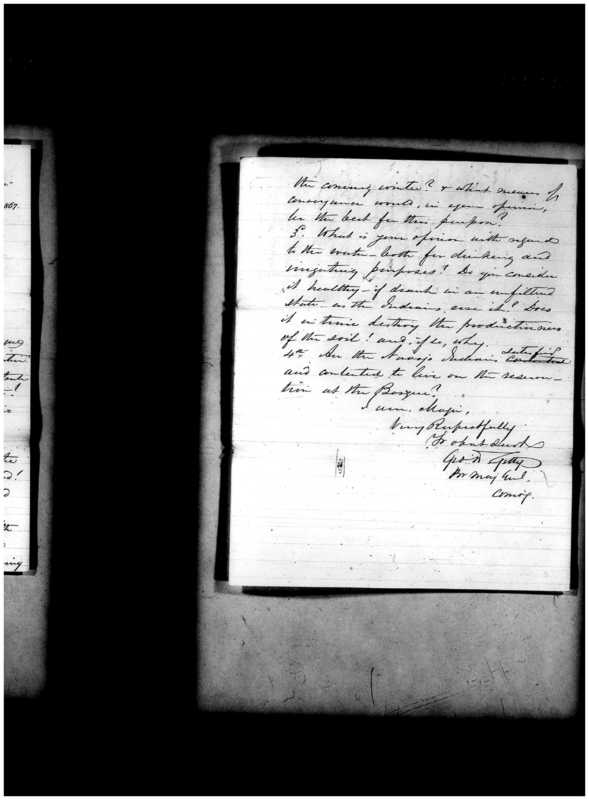 867.
the coming winter? & what means of
conveyance would, in your opinion,
be the best for this purpose?
3d. What is your opinion with regard
to the water - both for drinking and
irrigating purposes? Do you consider
it healthy - if drank in an unfiltered
state as the Indians use it? Does
it in time destroy the productiveness
of the soil? and, if so, why.
4th. Are the Navajo Indians satisfied contented
and contented to live on the reserva-
tion at the Bosque?
I am, Major,
Very Respectfully
Yr obdt Servt
Geo. W. Getty
Bvt Maj Genl.
Comdg.